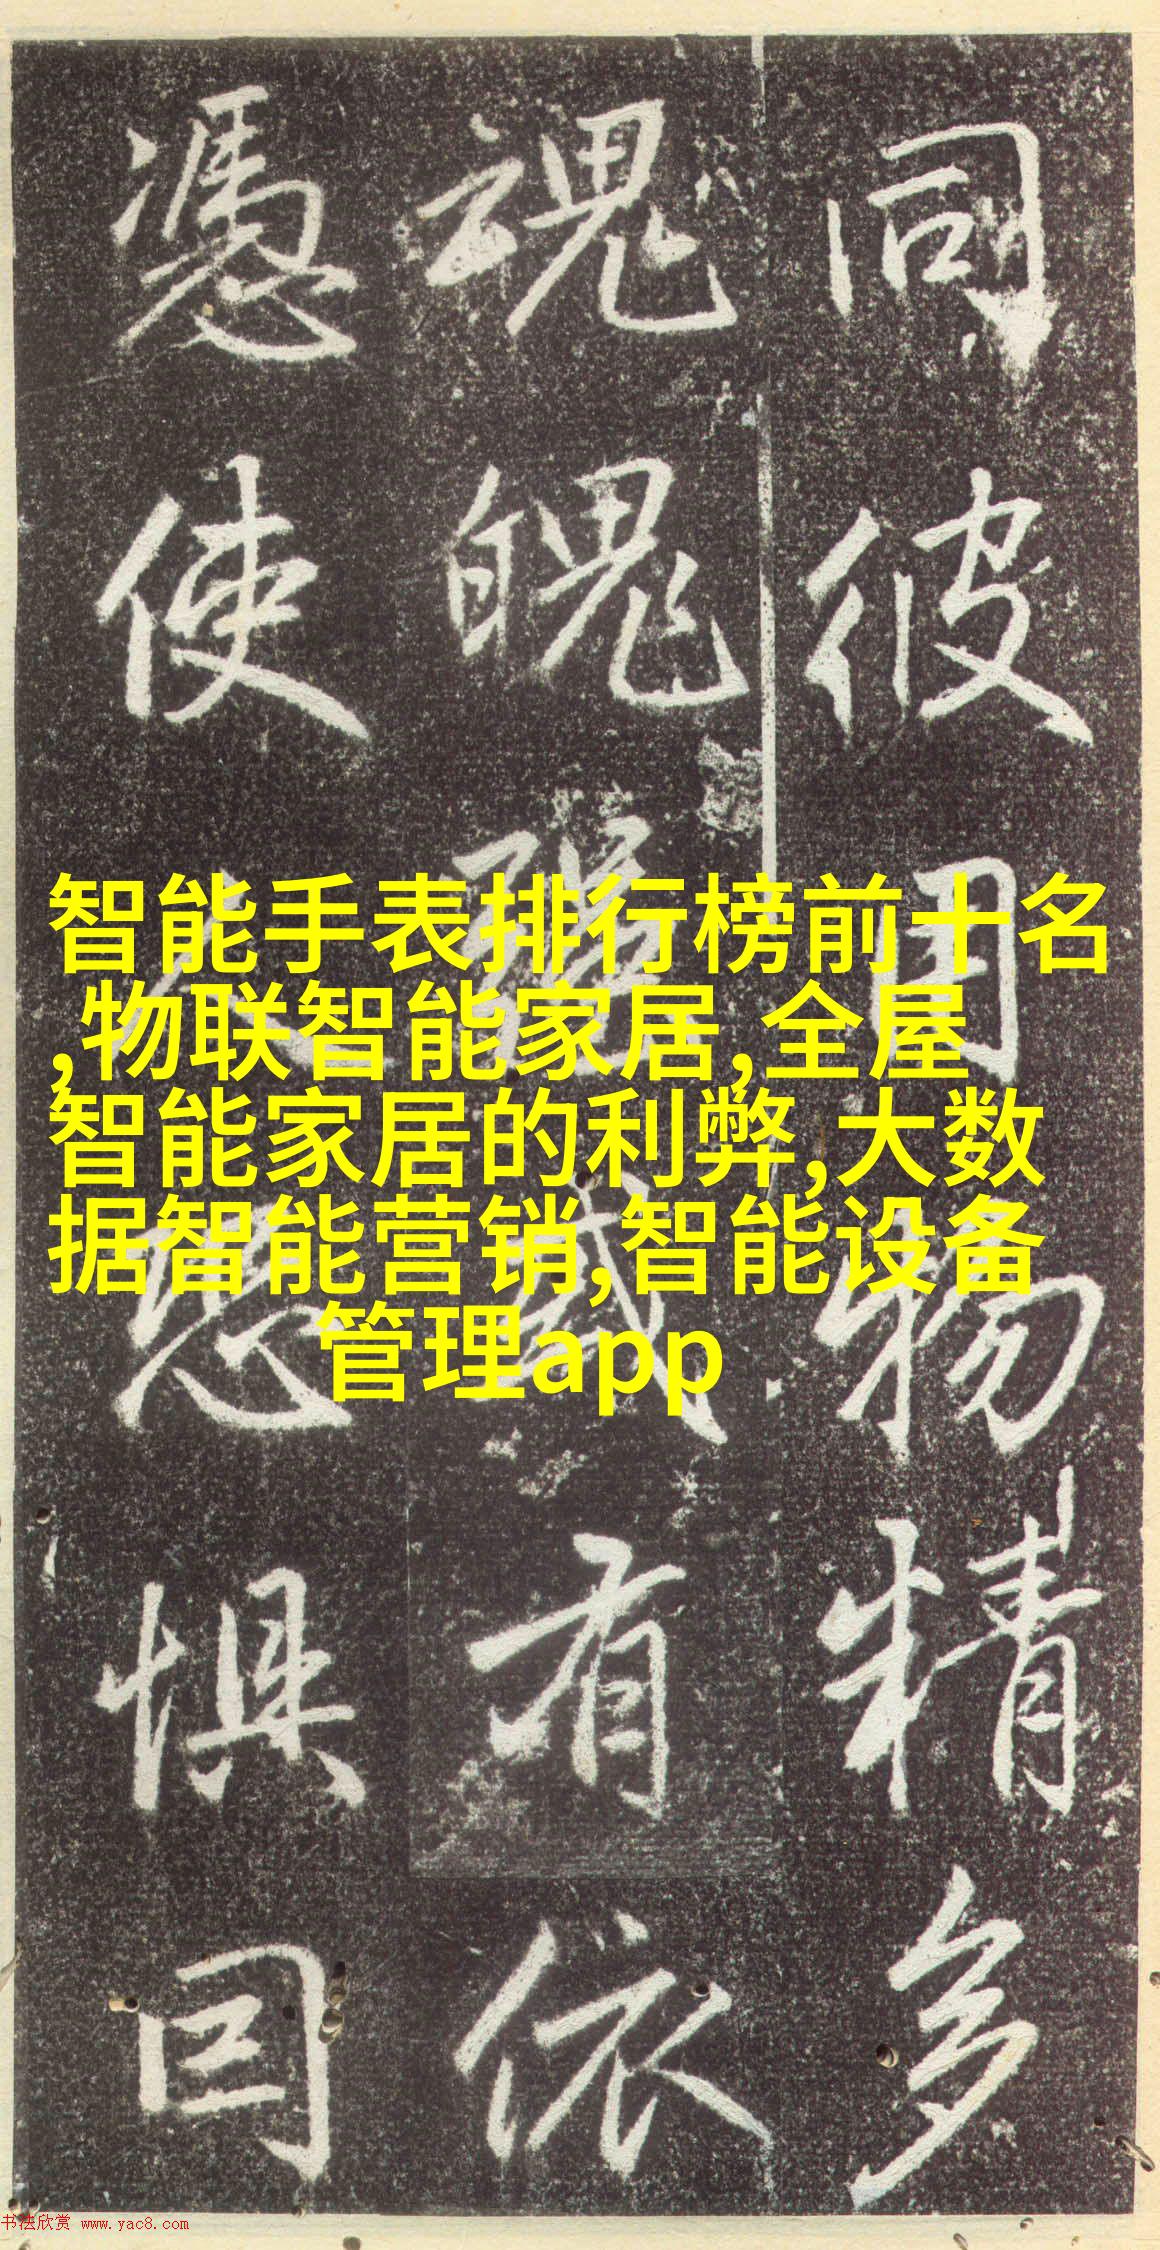 同彼用物精多
魂魄强或有依
憑使恐惧囙
智能手表排行榜前十名
,物联智能家居,全屋
智能家居的利弊,大数
据智能营销,智能设备
管理app
书法欣赏 www.yac8.com